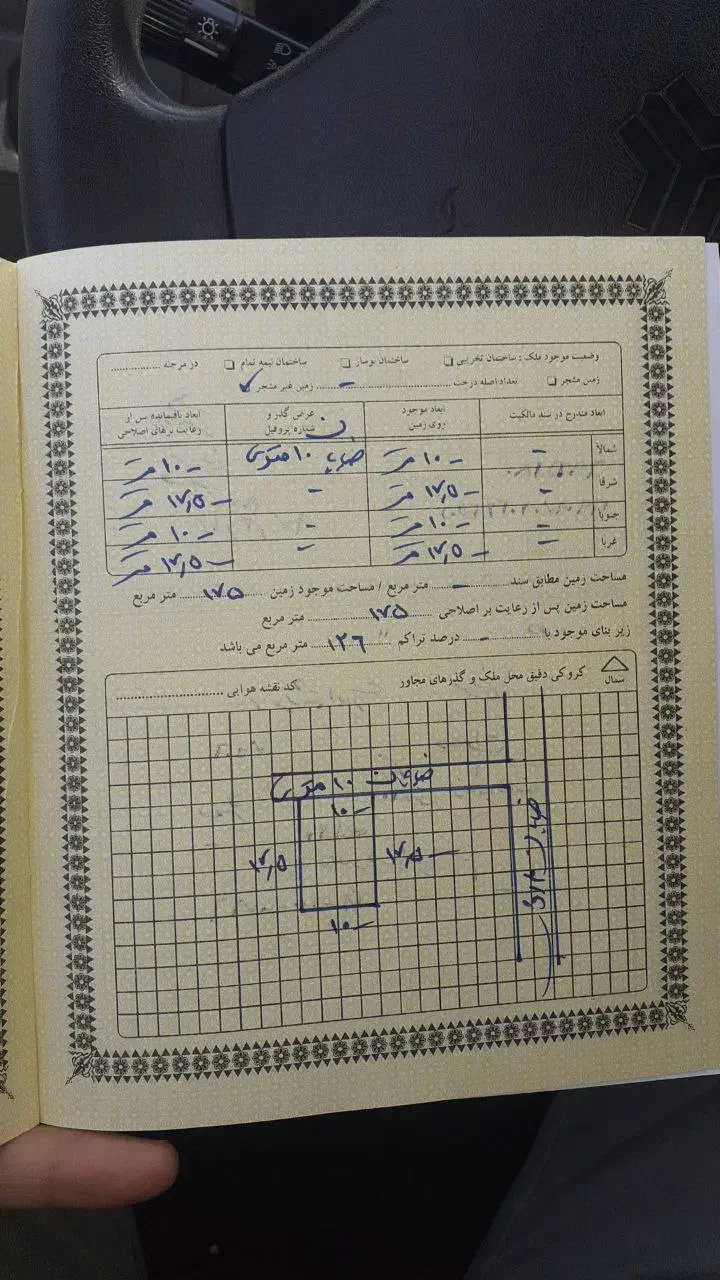 وضعیت موجود ملک : ساختمان تخریبی ساختمان نوساز ساختمان نیمه تمام در مرحله ................
زمین مشجر تعداد اصله درخت ........ – ........ زمین غیر مشجر ✓
ابعاد مندرج در سند مالکیت ابعاد موجود روی زمین عرض گذر و شماره پروفیل ابعاد باقیمانده پس از رعایت برهای اصلاحی
شمالاً – ۱۰ – متر خیابان ۱۰ متری ۱۰ – متر
شرقا – ۱۷,۵ – متر – ۱۷,۵ – متر
جنوبا – ۱۰ – متر – ۱۰ – متر
غربا – ۱۷,۵ – متر – ۱۷,۵ – متر
مساحت زمین مطابق سند ........ – ........ متر مربع / مساحت موجود زمین ۱۷۵ متر مربع
مساحت زمین پس از رعایت بر اصلاحی ۱۷۵ متر مربع
زیر بنای موجود با – درصد تراکم ۱۲۶ متر مربع می باشد
شمال
کروکی دقیق محل ملک و گذرهای مجاور کد نقشه هوایی ................
خیابان ۱۰ متری
۱۰ –
۱۷,۵ –
۱۷,۵
۱۰ –
خیابان